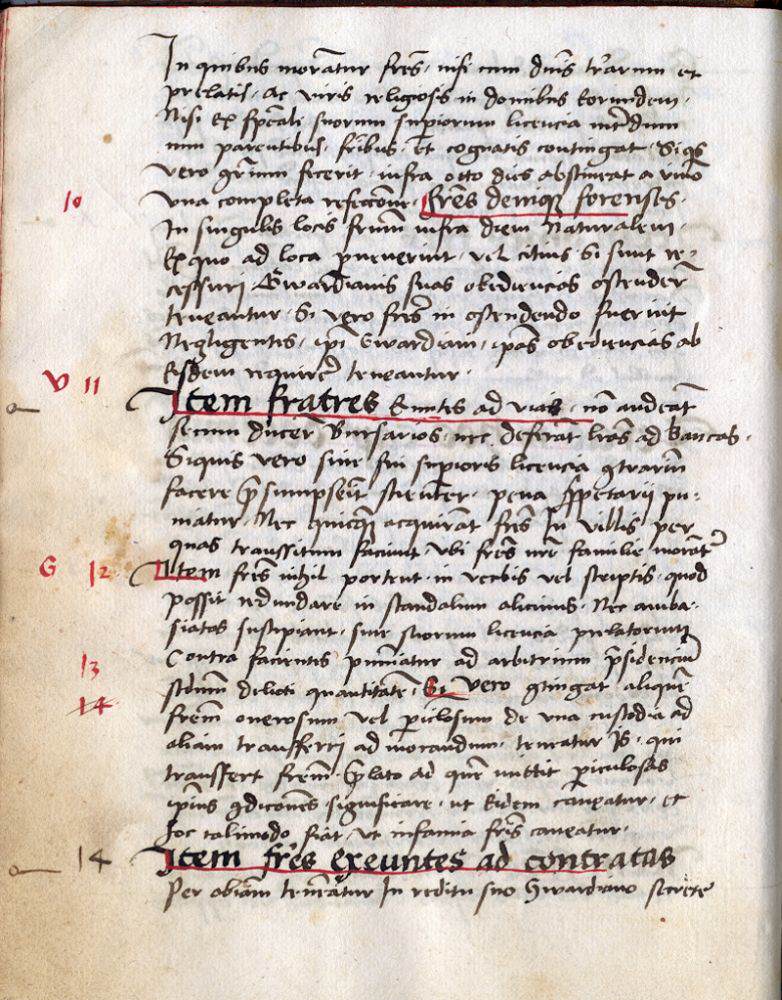 In quibus morantur fres. nisi cum dnis trarum et
prelatis. ac viris religiosis in domibus eorundem.
Nisi ex speali suorum supiorum licencia interdum
cum parentibus. fribus. et cognatis contingat. Siqs
vero 9rium fecerit. infra octo dies abstineat a vino
10 vna completa refeccone. fres deniq forenses.
In singulis locis frum infra diem naturalem.
Ex quo ad loca pvenerint. vel citius. si sunt re-
cessuri Gwardianis suas obediencias ostender
teneantur. Si vero fres in ostendendo fuerint
Negligentes. ipi Gwardiani. ipas obediencias ab
Eisdem requirere teneantur.
V 11 Item fratres Euntes ad vias. non audeat
secum ducere Bursarios. nec deferat lras ad bancas.
Siquis vero sine sui supioris licencia 9trarium
facere psumpserit scienter. pena pprietarij pu-
niatur. Nec quicq acquirat fres In villis per
quas transsitum faciunt. vbi fres nre familie morat
G 12 Item fres nihil portent. in verbis vel scriptis. quod
possit redundare in scandalum alicuius. Nec amba-
siatas suscipiant. sine suorum licencia prelatorum
13 Contra facientes puniatur ad arbitrium psidencium
14 scdum delicti quantitate. Si vero 9tingat alique
frem onerosum vel piculosum de vna custodia ad
aliam transferri ad morandum. teneatur is. qui
transfert frem. plato ad que mittit piculosas
ipius 9dicones significare. ut eidem caveatur. et
hoc talimodo fiat. vt infamia fris caveatur.
14 Item fres exeuntes ad contratas
Per obiam teneatur In reditu suo Gwardiano secrete